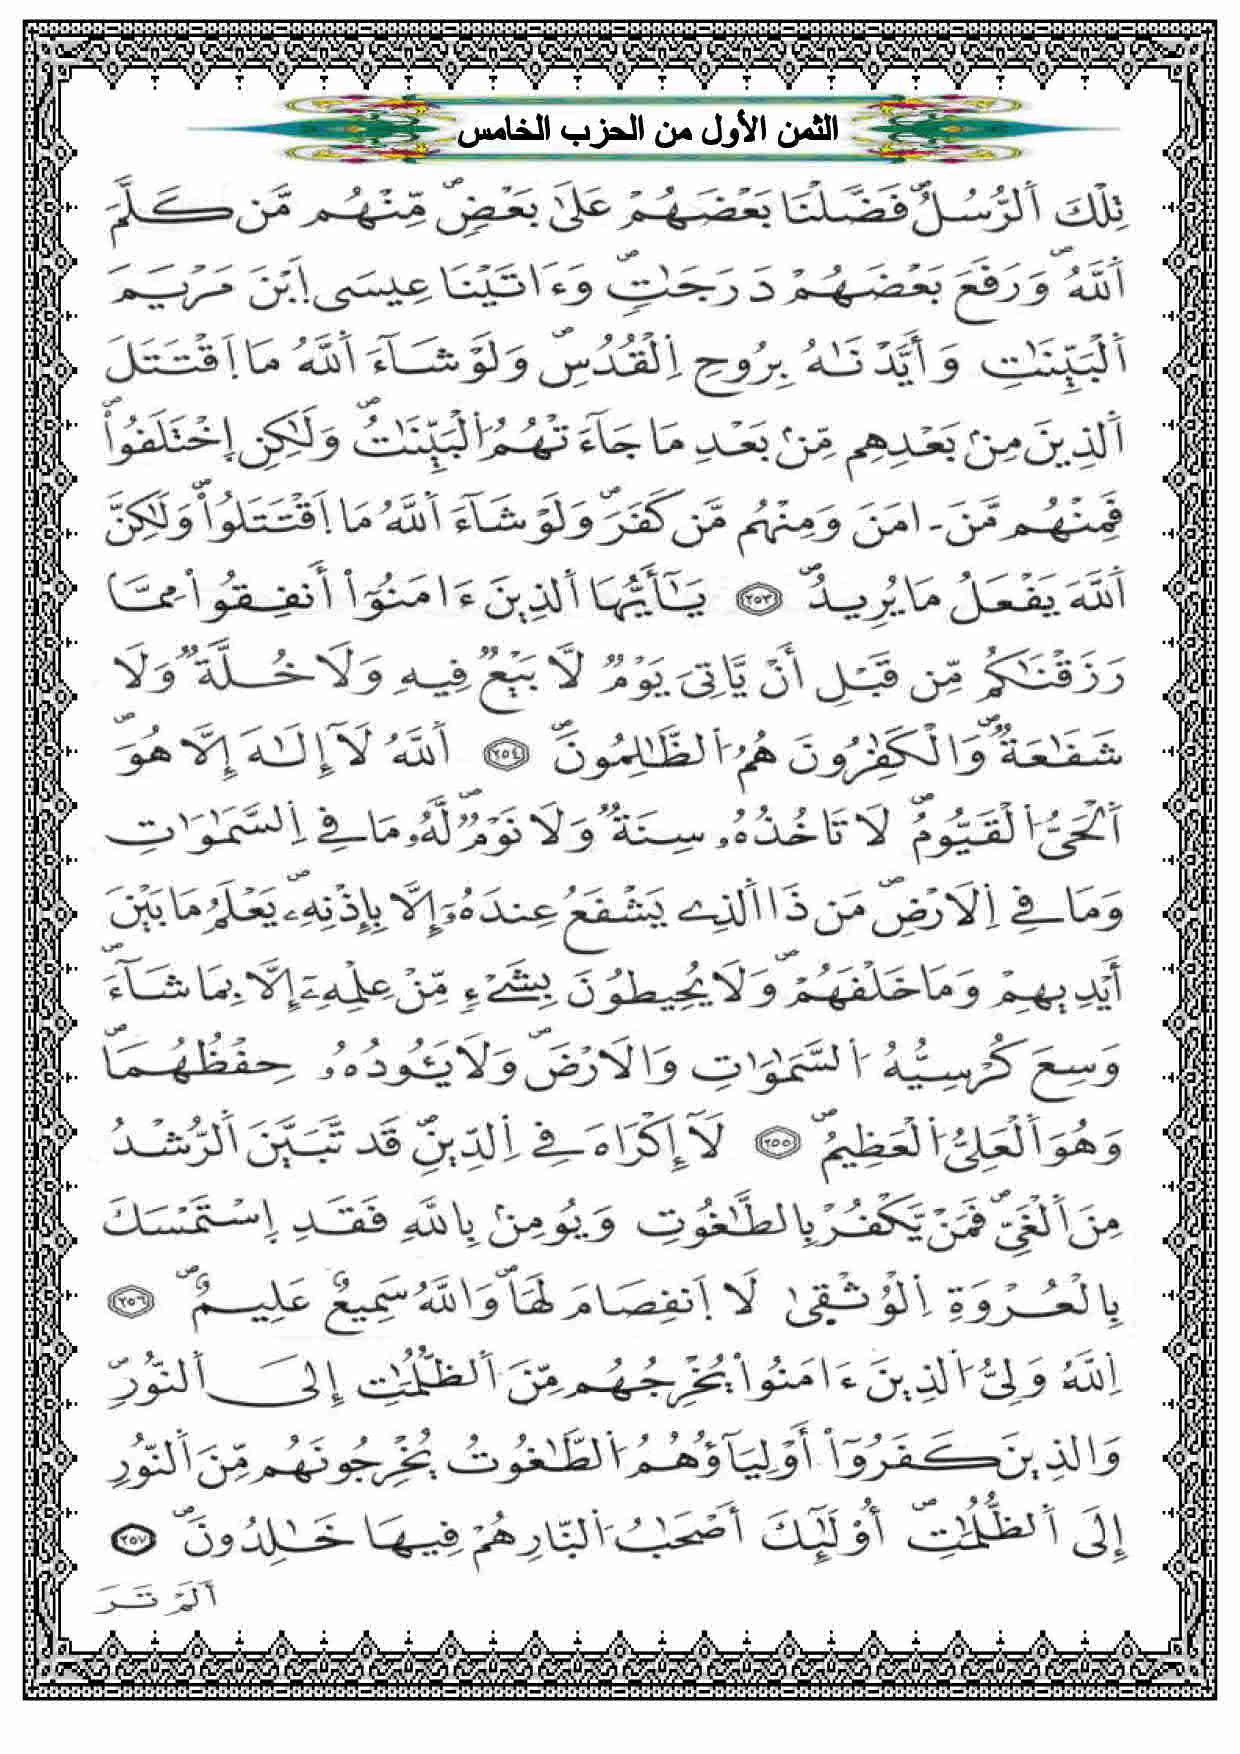 الثمن الأول من الحزب الخامس
تِلْكَ اَ۬لرُّسُلُ فَضَّلْنَا بَعْضَهُمْ عَلَىٰ بَعْضٖۖ مِّنْهُم مَّن كَلَّمَ
اَ۬للَّهُۖ وَرَفَعَ بَعْضَهُمْ دَرَجَٰتٖۖ وَءَاتَيْنَا عِيسَى اَ۪بْنَ مَرْيَمَ
اَ۬لْبَيِّنَٰتِ وَأَيَّدْنَٰهُ بِرُوحِ اِ۬لْقُدُسِۖ وَلَوْ شَآءَ اَ۬للَّهُ مَا اَ۪قْتَتَلَ
اَ۬لذِينَ مِنۢ بَعْدِهِم مِّنۢ بَعْدِ مَا جَآءَتْهُمُ اُ۬لْبَيِّنَٰتُۖ وَلَٰكِنِ اِ۪خْتَلَفُواْۖ
فَمِنْهُم مَّنَ ـ امَنَ وَمِنْهُم مَّن كَفَرَۖ وَلَوْ شَآءَ اَ۬للَّهُ مَا اَ۪قْتَتَلُواْۖ وَلَٰكِنَّ
اَ۬للَّهَ يَفْعَلُ مَا يُرِيدُۖ ٢٥٣ يَٰٓأَيُّهَا اَ۬لذِينَ ءَامَنُوٓاْ أَنفِقُواْ مِمَّا
رَزَقْنَٰكُم مِّن قَبْلِ أَنْ يَّاتِيَ يَوْمٞ لَّا بَيْعٞ فِيهِ وَلَا خُلَّةٞ وَلَا
شَفَٰعَةٞۖ وَالْكَٰفِرُونَ هُمُ اُ۬لظَّٰلِمُونَۖ ٢٥٤ اَ۬للَّهُ لَآ إِلَٰهَ إِلَّا هُوَۖ
اَ۬لْحَيُّ اُ۬لْقَيُّومُۖ لَا تَاخُذُهُۥ سِنَةٞ وَلَا نَوْمٞۖ لَّهُۥ مَا فِے اِ۬لسَّمَٰوَٰتِ
وَمَا فِے اِ۬لَارْضِۖ مَن ذَا اَ۬لذِے يَشْفَعُ عِندَهُۥٓ إِلَّا بِإِذْنِهِۦۖ يَعْلَمُ مَا بَيْنَ
أَيْدِيهِمْ وَمَا خَلْفَهُمْۖ وَلَا يُحِيطُونَ بِشَےْءٖ مِّنْ عِلْمِهِۦٓ إِلَّا بِمَا شَآءَۖ
وَسِعَ كُرْسِيُّهُ اُ۬لسَّمَٰوَٰتِ وَالَارْضَۖ وَلَا يَـُٔودُهُۥ حِفْظُهُمَاۖ
وَهُوَ اَ۬لْعَلِيُّ اُ۬لْعَظِيمُۖ ٢٥٥ لَآ إِكْرَاهَ فِے اِ۬لدِّينِۖ قَد تَّبَيَّنَ اَ۬لرُّشْدُ
مِنَ اَ۬لْغَيِّۖ فَمَنْ يَّكْفُرْ بِالطَّٰغُوتِ وَيُومِنۢ بِاللَّهِ فَقَدِ اِ۪سْتَمْسَكَ
بِالْعُرْوَةِ اِ۬لْوُثْقَىٰ لَا اَ۪نفِصَامَ لَهَاۖ وَاللَّهُ سَمِيعٌ عَلِيمٌۖ ٢٥٦
اِ۬للَّهُ وَلِيُّ اُ۬لذِينَ ءَامَنُواْ يُخْرِجُهُم مِّنَ اَ۬لظُّلُمَٰتِ إِلَى اَ۬لنُّورِۖ
وَالذِينَ كَفَرُوٓاْ أَوْلِيَآؤُهُمُ اُ۬لطَّٰغُوتُ يُخْرِجُونَهُم مِّنَ اَ۬لنُّورِ
إِلَى اَ۬لظُّلُمَٰتِۖ أُوْلَٰٓئِكَ أَصْحَٰبُ اُ۬لنَّارِ هُمْ فِيهَا خَٰلِدُونَۖ ٢٥٧
اَلَمْ تَرَ